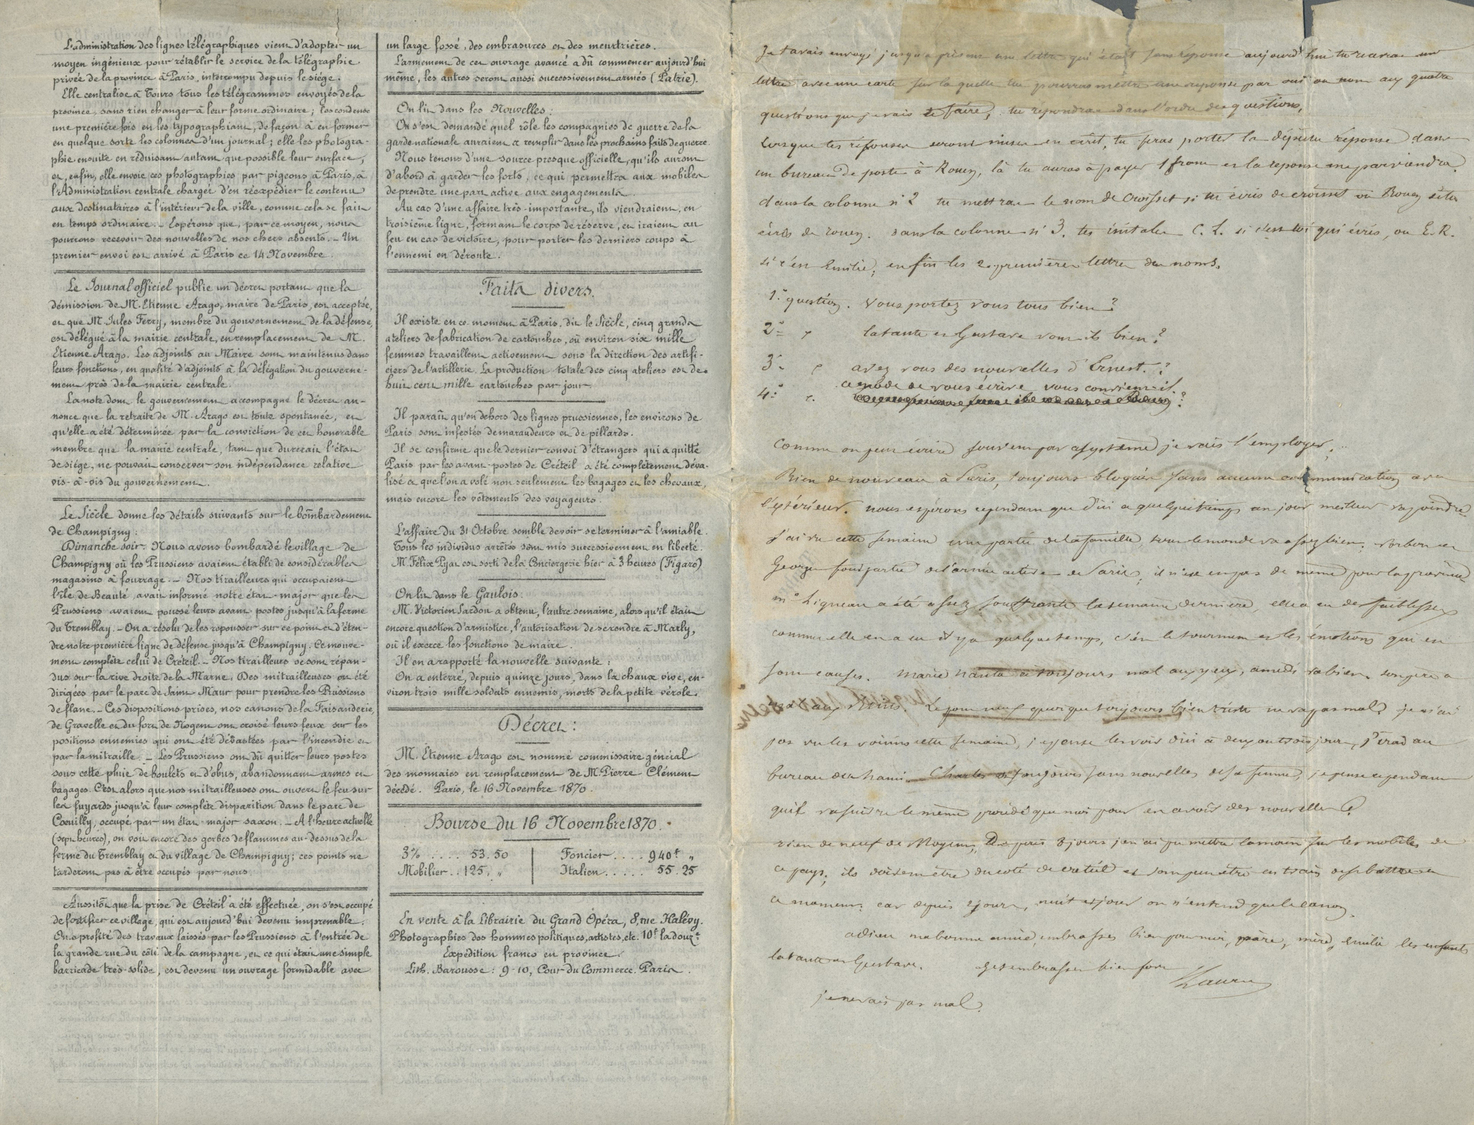 L'administration des lignes télégraphiques vient d'adopter un
moyen ingénieux pour rétablir le service de la télégraphie
privée de la province à Paris, interrompu depuis le siège.
Elle centralise à Tours tous les télégrammes envoyés de la
province sans rien changer à leur forme ordinaire; les condense
une première fois en les typographiant, de façon à en former
en quelque sorte les colonnes d'un journal; elle les photogra-
phie ensuite en réduisant autant que possible leur surface,
et, enfin, elle envoie ces photographies par pigeons à Paris, à
l'Administration centrale chargée d'en réexpédier le contenu
aux destinataires à l'intérieur de la ville, comme cela se fait
en temps ordinaire. — Espérons que, par ce moyen, nous
pourrons recevoir des nouvelles de nos chers absents. — Un
premier envoi est arrivé à Paris ce 14 Novembre.
Le Journal officiel publie un décret portant que la
démission de M. Etienne Arago, maire de Paris, est acceptée,
et que M. Jules Ferry, membre du gouvernement de la défense,
est délégué à la mairie centrale, en remplacement de M.
Etienne Arago. Les adjoints au Maire sont maintenus dans
leurs fonctions, en qualité d'adjoints à la délégation du gouverne-
ment près de la mairie centrale.
La note dont le gouvernement accompagne le décret an-
nonce que la retraite de M. Arago est toute spontanée, et
qu'elle a été déterminée par la conviction de cet honorable
membre que la mairie centrale, tant que durerait l'état
de siège, ne pouvait conserver son indépendance relative
vis-à-vis du gouvernement.
Le Siècle donne les détails suivants sur le bombardement
de Champigny:
Dimanche soir. Nous avons bombardé le village de
Champigny où les Prussiens avaient établi de considérables
magasins à fourrage. — Nos tirailleurs qui occupaient
l'île de Beauté avait informé notre état-major que les
Prussiens avaient poussé leurs avant postes jusqu'à la ferme
du Tremblay. — On a résolu de les repousser sur ce point et d'éten-
dre notre première ligne de défense jusqu'à Champigny. Ce mouve-
ment complète celui de Créteil. — Nos tirailleurs se sont répan-
dus sur la rive droite de la Marne. Des mitrailleuses ont été
dirigées par le parc de Saint Maur pour prendre les Prussiens
de flanc. — Ces dispositions prises, nos canons de la Faisanderie,
de Gravelle et du fort de Nogent ont croisé leurs feux sur les
positions ennemies qui ont été dévastées par l'incendie et
par la mitraille. — Les Prussiens ont dû quitter leurs postes
sous cette pluie de boulets et d'obus, abandonnant armes et
bagages. C'est alors que nos mitrailleuses ont ouvert le feu sur
les fuyards jusqu'à leur complète disparition dans le parc de
Cœuilly, occupé par un état-major saxon. — A l'heure actuelle
(sept heures), on voit encore des gerbes de flammes au-dessus de la
ferme du Tremblay et du village de Champigny; ces points ne
tarderont pas à être occupés par nous.
Aussitôt que la prise de Créteil a été effectuée, on s'est occupé
de fortifier ce village, qui est aujourd'hui devenu imprenable.
On a profité des travaux laissés par les Prussiens à l'entrée de
la grande rue du côté de la campagne, et ce qui était une simple
barricade très-solide, est devenu un ouvrage formidable avec
un large fossé, des embrasures et des meurtrières.
L'armement de cet ouvrage avancé a dû commencer aujourd'hui
même, les autres seront aussi successivement armés (Patrie).
On lit dans les Nouvelles:
On s'est demandé quel rôle les compagnies de guerre de la
garde nationale auraient à remplir dans les prochains faits de guerre.
Nous tenons d'une source presque officielle, qu'ils auront
d'abord à garder les forts, ce qui permettra aux mobiles
de prendre une part active aux engagements.
Au cas d'une affaire très-importante, ils viendraient, en
troisième ligne, formant le corps de réserve, et iraient au
feu en cas de victoire, pour porter les derniers coups à
l'ennemi en déroute.
Faits divers.
Il existe en ce moment à Paris, dit le Siècle, cinq grands
ateliers de fabrication de cartouches, où environ six mille
femmes travaillent activement sous la direction des artifi-
ciers de l'artillerie. La production totale des cinq ateliers est de
huit cent mille cartouches par jour.
Il paraît qu'en dehors des lignes prussiennes, les environs de
Paris sont infestés de maraudeurs et de pillards.
Il se confirme que le dernier convoi d'étrangers qui a quitté
Paris par les avant-postes de Créteil a été complètement déva-
lisé & que l'on a volé non seulement les bagages et les chevaux,
mais encore les vêtements des voyageurs.
L'affaire du 31 Octobre semble devoir se terminer à l'amiable.
Tous les individus arrêtés sont mis successivement en liberté.
M. Félix Pyat est sorti de la Conciergerie hier à 3 heures (Figaro)
On lit dans le Gaulois:
M. Victorien Sardou a obtenu, l'autre semaine, alors qu'il était
encore question d'armistice, l'autorisation de se rendre à Marly,
où il exerce les fonctions de maire.
Il en a rapporté la nouvelle suivante:
On a enterré, depuis quinze jours, dans la chaux vive, en-
viron trois mille soldats ennemis, morts de la petite vérole.
Décret:
M. Etienne Arago est nommé commissaire général
des monnaies en remplacement de M. Pierre Clément
décédé. Paris, le 16 Novembre 1870.
Bourse du 16 Novembre 1870.
3% .... 53.50 Foncier .... 940f "
Mobilier .. 125. " Italien ..... 55 25
En vente à la Librairie du Grand Opéra, 8, rue Halévy.
Photographies des hommes politiques, artistes, etc. 10f la douz.e
Expédition franco en province.
Lith. Barousse: 9-10, Cour du Commerce. Paris.
Je t'avais envoyé jusqu'à présent une lettre qui était sans réponse aujourd'hui tu recevras une
lettre avec une carte sur laquelle tu pourras mettre une réponse par oui ou non aux quatre
questions que je vais te faire, tu répondras dans l'ordre des questions.
Lorsque tes réponses seront mises en écrit, tu feras porter la dépêche réponse dans
un bureau de poste à Rouen, là tu auras à payer 1 franc et la réponse me parviendra.
dans la colonne n° 2 tu mettras le nom de Croisset si tu écris de croisset ou Rouen si tu
écris de rouen. dans la colonne n° 3. tes initales C. L. si c'est toi qui écris, ou E. R.
si c'est Emilie, enfin les 2 premières lettres des noms.
1re question. Vous portez vous tous bien?
2e " la tante et Gustave vont-ils bien?
3e " avez vous des nouvelles d'Ernest?
4e " ce mode de vous écrire vous convient-il?
Comme on peut écrire souvent par ce système je vais l'employer.
Rien de nouveau à Paris, toujours bloqués sans aucune communication avec
l'extérieur. nous espérons cependant que d'ici à quelque temps un jour meilleur va poindre
j'ai vu cette semaine une partie de la famille tout le monde va assez bien,
George font partie de l'armée active de Paris, il n'en est pas de même pour la province
Mme Ligneau a été assez souffrante la semaine dernière, elle a eu des faiblesses
comme elle en a eu il y a quelque temps, c'est le tourment et les émotions qui en
sont causes. Marie a toujours mal aux yeux, amédé va bien.
toujours bien triste ne va pas mal, je n'ai
pas vu les voisins cette semaine, je pense les voir d'ici à deux ou trois jours, j'irai au
bureau de toujours sans nouvelles de sa femme, je pense cependant
qu'il va suivre le même procédé que moi pour en avoir des nouvelles.
rien de neuf de Nogent, Depuis 8 jours j'en ai pu mettre la main sur les mobiles de
ce pays, ils doivent être du côté de créteil et sont peut être en train de se battre en
ce moment car depuis jours, nuit et jour on n'entend que le canon.
adieu ma bonne amie embrasses bien pour moi, père, mère, Emilie les enfants
la tante et Gustave. Je t'embrasse bien fort
je ne vais pas mal.